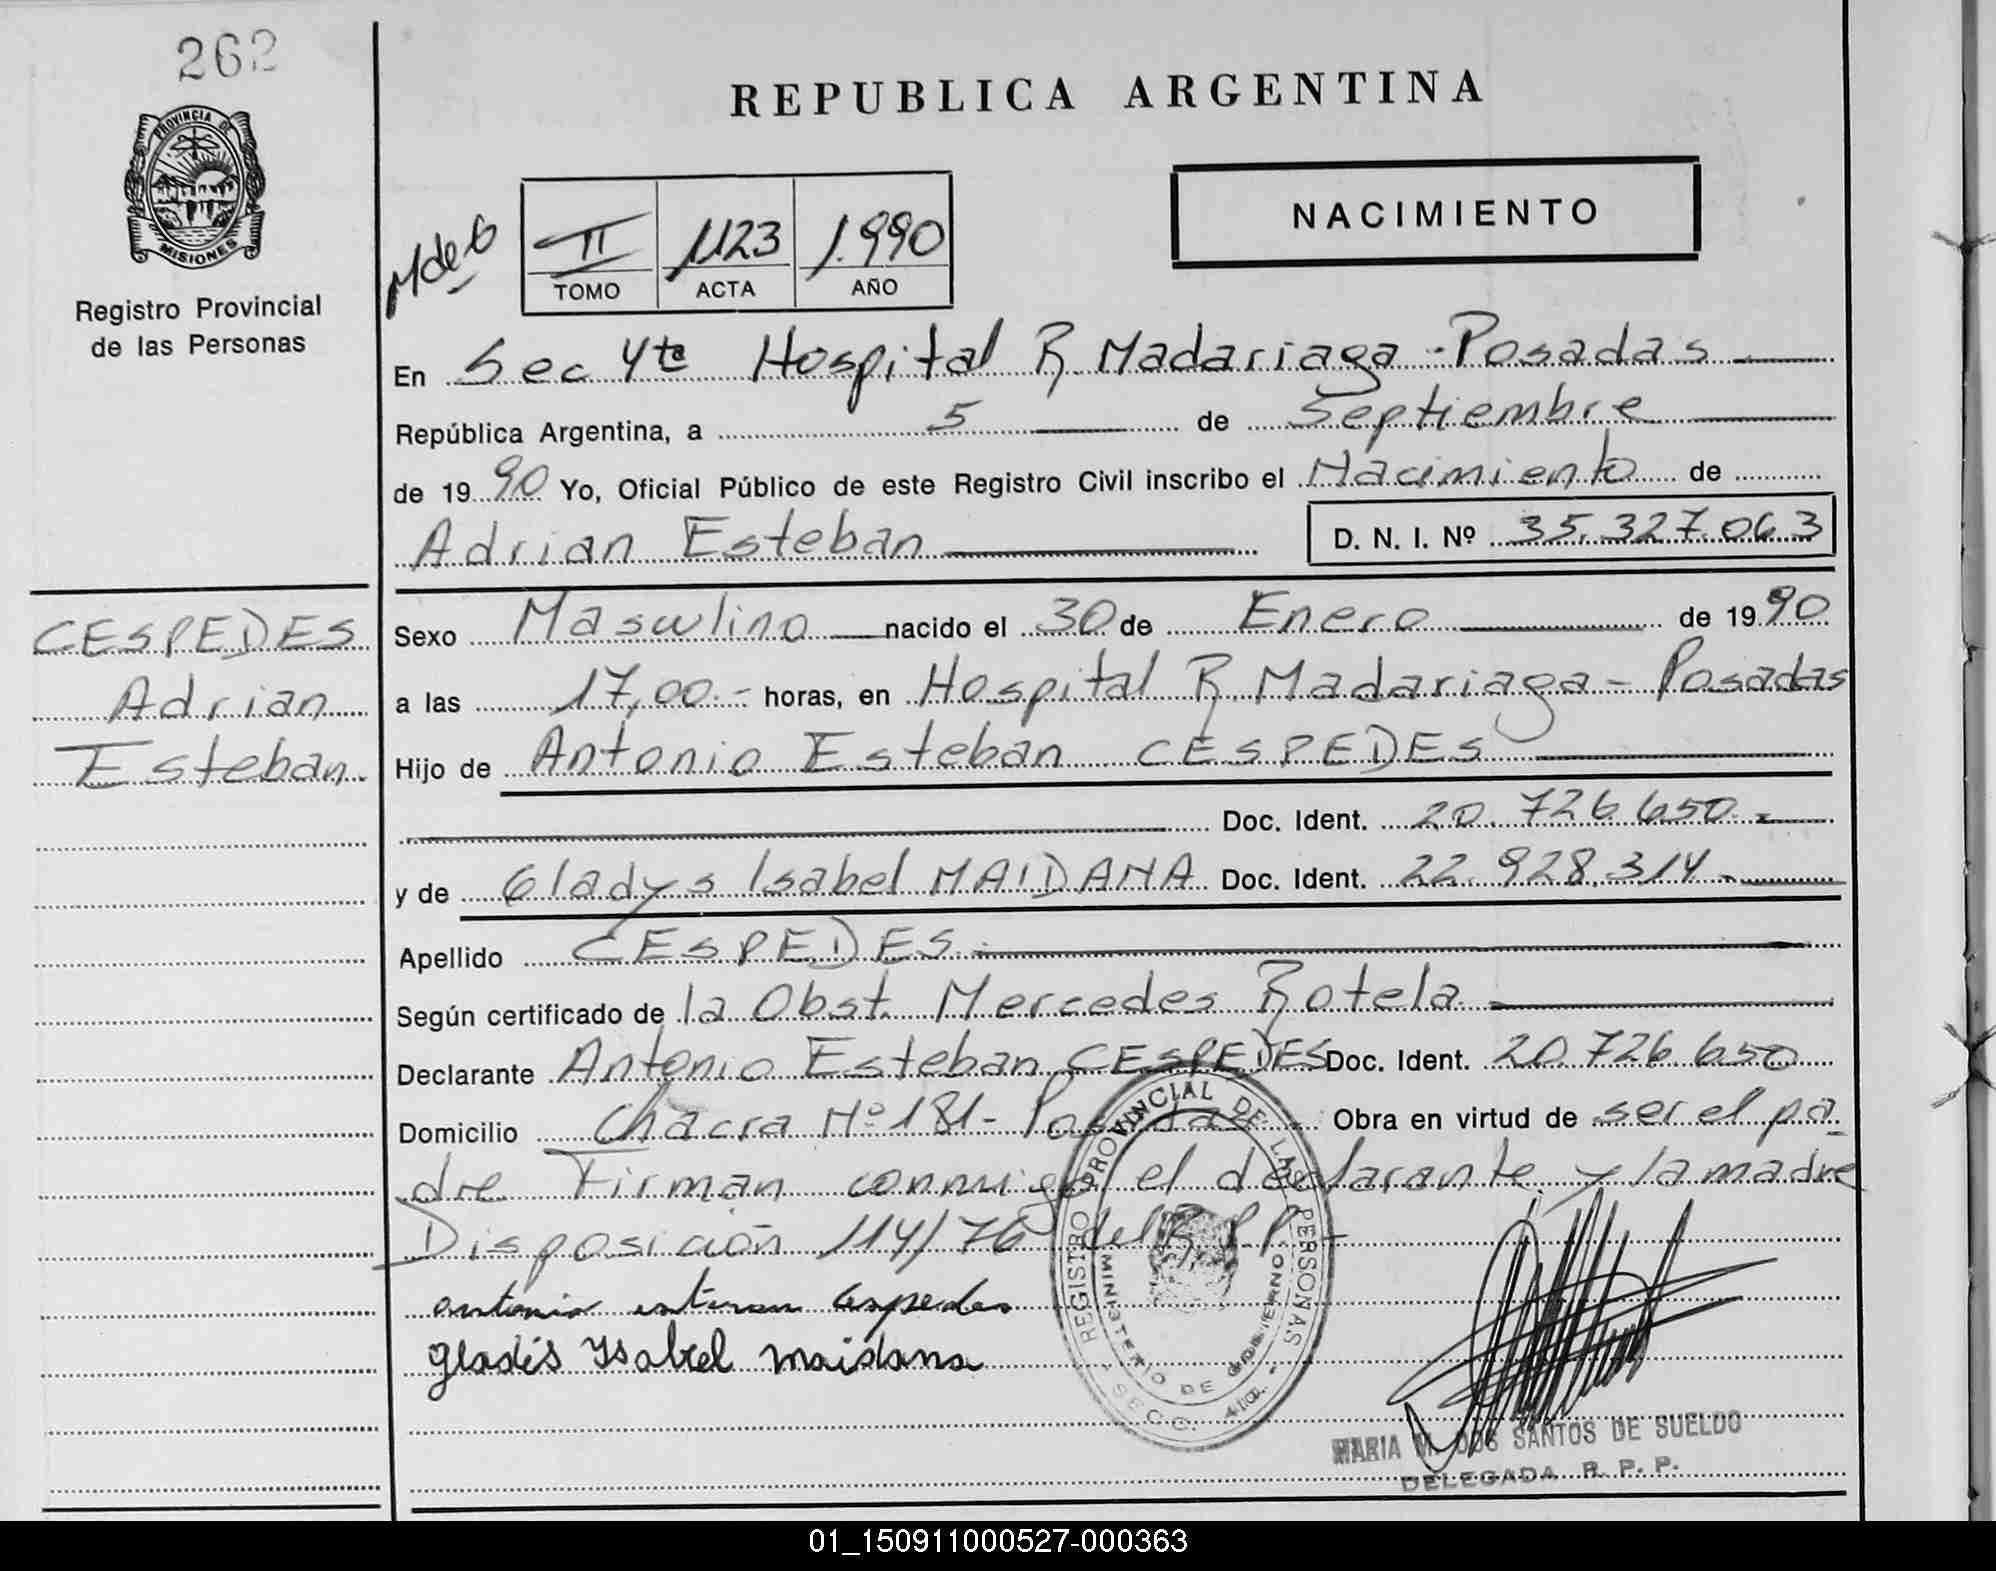 262
PROVINCIA DE
MISIONES
Registro Provincial
de las Personas
REPUBLICA ARGENTINA
NACIMIENTO
II 1123 1.990
TOMO ACTA AÑO
En Sec 4ta Hospital R Madariaga - Posadas
República Argentina, a 5 de Septiembre
de 1990 Yo, Oficial Público de este Registro Civil inscribo el Nacimiento de
Adrian Esteban D. N. I. Nº 35.327.063
CESPEDES
Adrian
Esteban.
Sexo Masculino nacido el 30 de Enero de 1990
a las 17,00.- horas, en Hospital R Madariaga - Posadas
Hijo de Antonio Esteban CESPEDES
Doc. Ident. 20.726.650.-
y de Gladys Isabel MAIDANA Doc. Ident. 22.928.314.-
Apellido CESPEDES.-
Según certificado de la Obst. Mercedes Rotela.
Declarante Antonio Esteban CESPEDES Doc. Ident. 20.726.650
Domicilio Chacra Nº 181 - Posadas Obra en virtud de ser el pa-
dre Firman conmigo el declarante y la madre
Disposición 114/76 del R.P.P.-
antonio esteran Cespedes
gladis Ysabel maidana
REGISTRO PROVINCIAL DE LAS PERSONAS
MINISTERIO DE GOBIERNO
SECC. 4ta.
MARIA M. DOS SANTOS DE SUELDO
DELEGADA R. P. P.
01_150911000527-000363